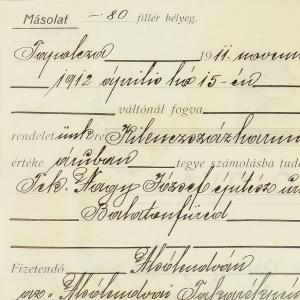 Másolat –80 fillér bélyeg.
Tapolcza 1911. novem
1912 április hó 15-én
váltónál fogva
rendeletünkre Kilenczszázharm
értéke áruban tegye számolásba tud
Tek. Nagy József építész úr
Balatonfüred
Fizetendő Alsólendván
az Alsólendvai Takarékpén